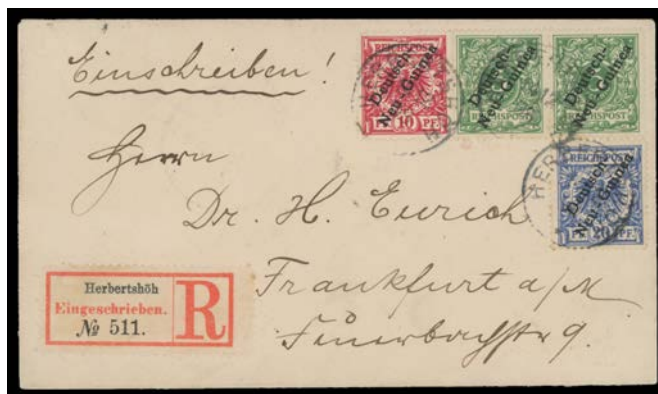 Einschreiben!
REICHSPOST
Deutsch-
Neu-Guinea
10 PF
Deutsch-
Neu-Guinea
REICHSPOST
Deutsch-
Neu-Guinea
REICHSPOST
REICHSPOST
Deutsch-
Neu-Guinea
20 PF
Herrn
Dr. H. Eurich
Frankfurt a/M
Feuerbachstr 9.
Herbertshöh
Eingeschrieben.
№ 511.
R